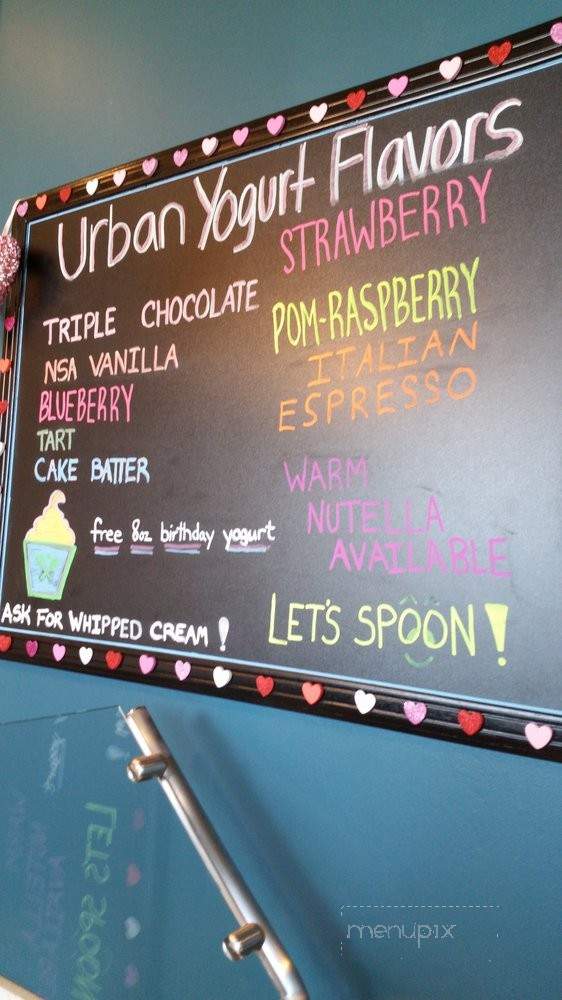 Urban Yogurt Flavors
TRIPLE CHOCOLATE
NSA VANILLA
BLUEBERRY
TART
CAKE BATTER
free 8oz birthday yogurt
ASK FOR WHIPPED CREAM!
STRAWBERRY
POM-RASPBERRY
ITALIAN
ESPRESSO
WARM
NUTELLA
AVAILABLE
LET'S SPOON!
LET'S SPOON
menupix